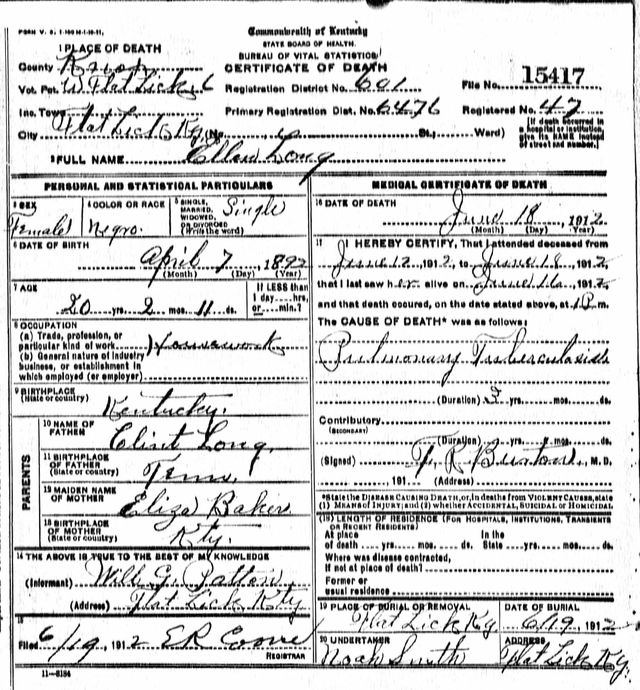 FORM V. S. 1-100 M-1-10-11.
Commonwealth of Kentucky
STATE BOARD OF HEALTH.
BUREAU OF VITAL STATISTICS
CERTIFICATE OF DEATH
1 PLACE OF DEATH
County Knox
Vot. Pct. W Flat Lick 6
Registration District No. 601
File No. 15417
Inc. Town
Primary Registration Dist. No. 6476
Registered No. 47
City Flat Lick Ky (No. St.; Ward)
[If death occurred in a hospital or institution, give its NAME instead of street and number.]
2 FULL NAME Ellen Long
PERSONAL AND STATISTICAL PARTICULARS
3 SEX Female
4 COLOR OR RACE Negro.
5 SINGLE, MARRIED, WIDOWED, OR DIVORCED (Write the word) Single
6 DATE OF BIRTH
April 7, 1892
(Month) (Day) (Year)
7 AGE
20 yrs. 2 mos. 11 ds.
If LESS than 1 day.... hrs, or.... min.?
8 OCCUPATION
(a) Trade, profession, or particular kind of work Housework
(b) General nature of industry business, or establishment in which employed (or employer)
9 BIRTHPLACE
(State or country) Kentucky.
PARENTS
10 NAME OF FATHER Clint Long
11 BIRTHPLACE OF FATHER (State or country) Tenn.
12 MAIDEN NAME OF MOTHER Eliza Baker
13 BIRTHPLACE OF MOTHER (State or country) Kty.
14 THE ABOVE IS TRUE TO THE BEST OF MY KNOWLEDGE
(Informant) Will G. Patton
(Address) Flat Lick Kty
15
Filed 6/19, 1912 ER
REGISTRAR
11-8184
MEDICAL CERTIFICATE OF DEATH
16 DATE OF DEATH
June 18, 1912
(Month) (Day) (Year)
17 I HEREBY CERTIFY, That I attended deceased from
June 12 1912, to June 18, 1912,
that I last saw her alive on June 16, 1912
and that death occured, on the date stated above, at 1 P m.
The CAUSE OF DEATH* was as follows:
Pulmonary Tuberculosis
(Duration) yrs. mos. ds.
Contributory
(SECONDARY)
(Duration) yrs. mos. ds.
(Signed) Burton, M.D.
, 191 (Address)
*State the DISEASE CAUSING DEATH, or, in deaths from VIOLENT CAUSES, state (1) MEANS OF INJURY; and (2) whether ACCIDENTAL, SUICIDAL or HOMICIDAL
(18) LENGTH OF RESIDENCE (FOR HOSPITALS, INSTITUTIONS, TRANSIENTS OR RECENT RESIDENTS)
At place of death yrs. mos. ds. In the State yrs. mos. ds.
Where was disease contracted, if not at place of death?
Former or usual residence
19 PLACE OF BURIAL OR REMOVAL
Flat Lick Ky
DATE OF BURIAL
6/19 1912
20 UNDERTAKER
Noah Smith
ADDRESS
Flat Lick Ky